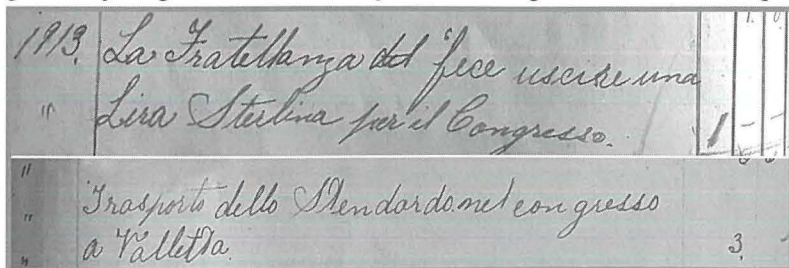 1913. La Fratellanza del fece uscire una
" Lira Sterlina per il Congresso. 1 - -
"
" Trasporto dello Stendardo nel congresso
" a Valletta. 3.